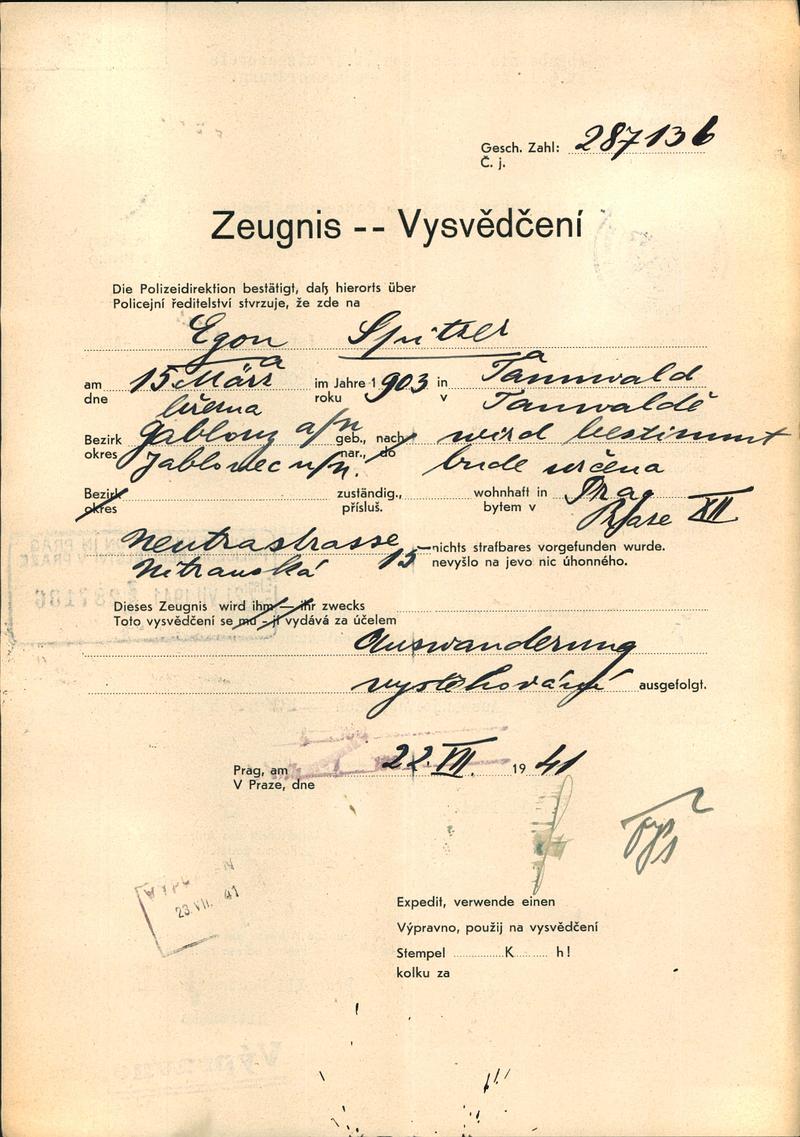 Gesch. Zahl: 287136
Č. j.
Zeugnis -- Vysvědčení
Die Polizeidirektion bestätigt, daß hierorts über
Policejní ředitelství stvrzuje, že zde na
Egon Spitzer
am 15 März im Jahre 1903 in Tannwald
dne března roku v Tanwaldě
Bezirk Gablonz a/n geb., nach wird bestimmt
okres Jablonec n/n. nar., do bude určena
Bezirk zuständig., wohnhaft in Prag
okres přísluš. bytem v Praze XII
Neutrastrasse nichts strafbares vorgefunden wurde.
Nitranská 15 nevyšlo na jevo nic úhonného.
Dieses Zeugnis wird ihm — ihr zwecks
Toto vysvědčení se mu - jí vydává za účelem
Auswanderung
vystěhování ausgefolgt.
Prag, am 22. VII. 19 41
V Praze, dne
23. VII. 41
Expedit, verwende einen
Výpravno, použij na vysvědčení
Stempel K h!
kolku za